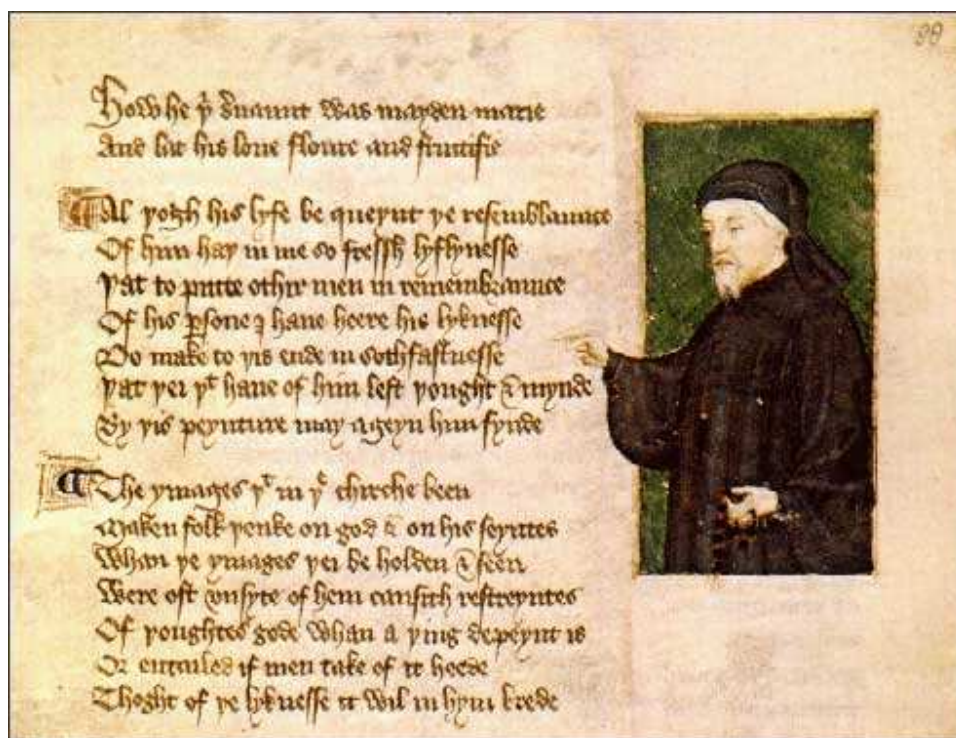 88
How he þⁱ s̛uaunt was mayden marie
And lat his loue floure and fructifie
Al þogh his lyfe be queynt þe resemblaunce
Of him haþ in me so fressh lyflynesse
Þat to putte othir men in remembraunce
Of his ꝑsone I haue heere his lyknesse
Do make to þis ende in sothfastnesse
Þat þei þᵗ haue of him left þought & mynde
By þis peynture may ageyn him fynde
The ymages þᵗ in þᵉ chirche been
Maken folk þenke on god & on his seyntes
Whan þe ymages þei be holden & seen
Were oft vnsyte of hem causith restreyntes
Of þoughtes gode whan a þing depeynt is
Or entailed if men take of it heede
Thoght of þe lyknesse it wil in hym brede